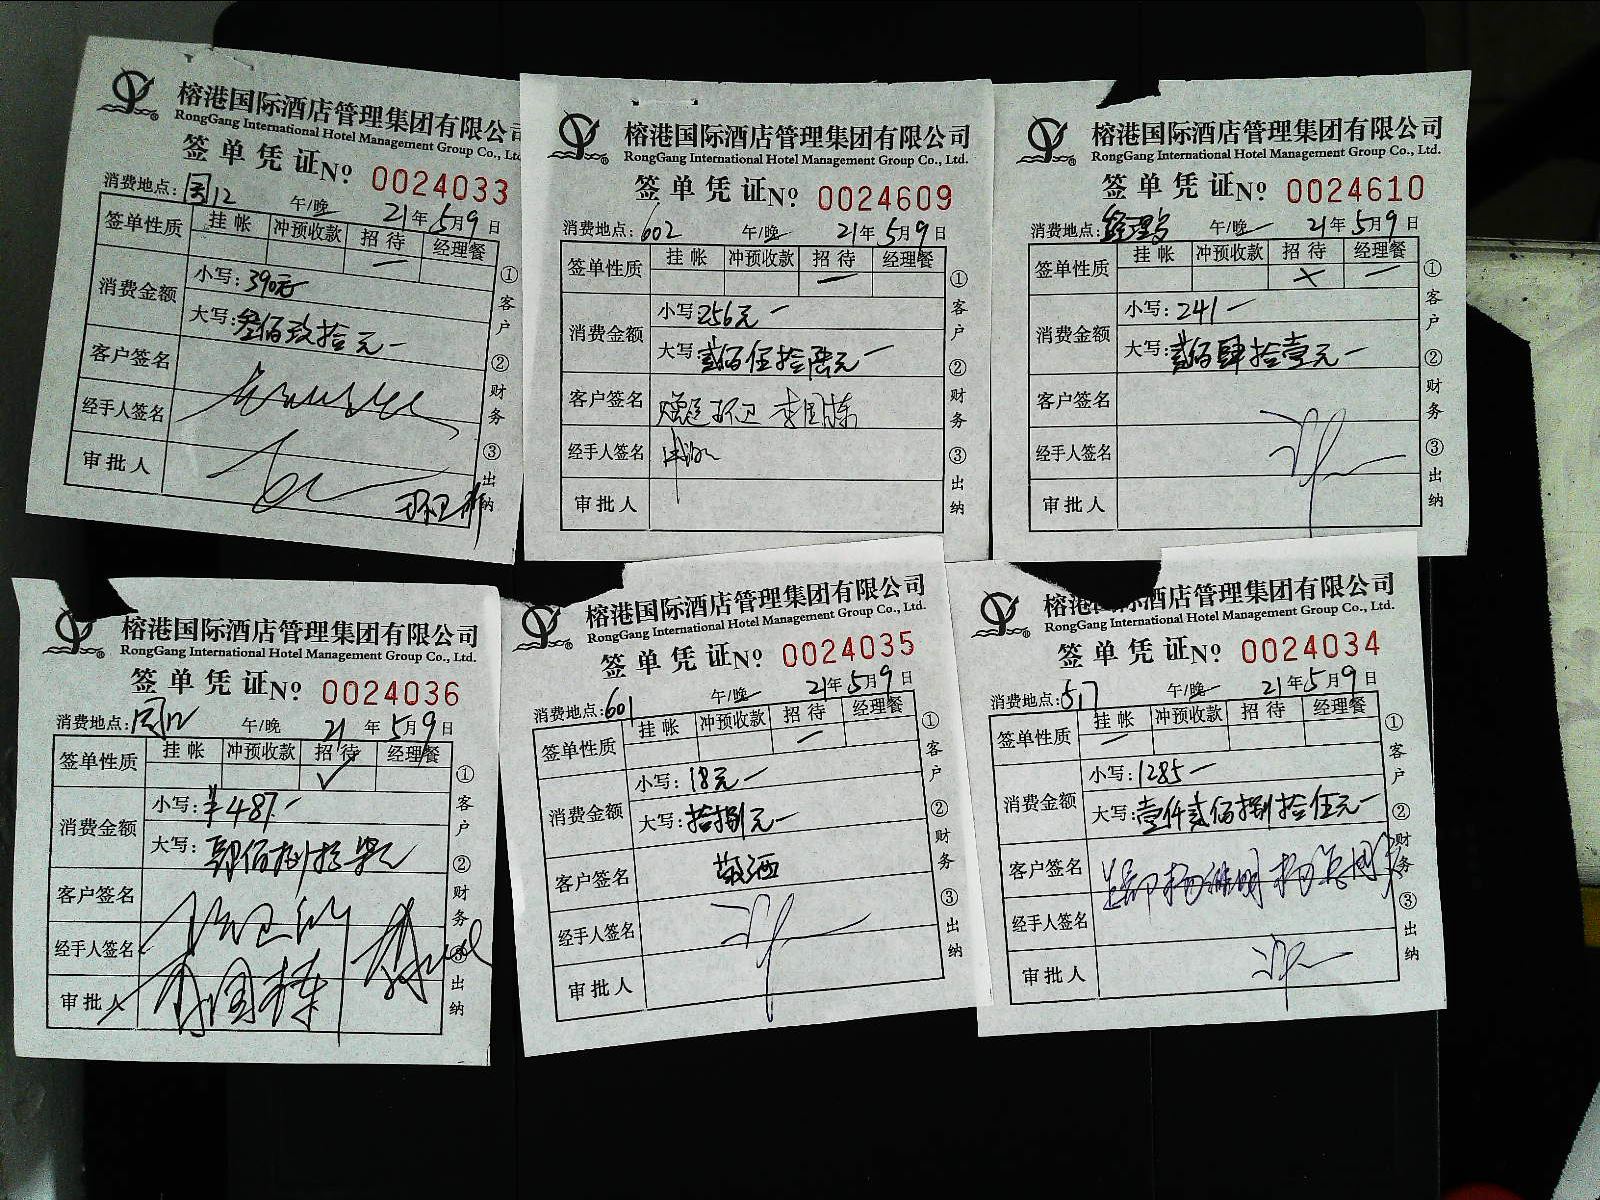 榕港国际酒店管理集团有限公司
RongGang International Hotel Management Group Co., Ltd.
签单凭证 No 0024033
消费地点: 12 午/晚 21年5月9日
签单性质 挂帐 冲预收款 招待 经理餐
消费金额 小写: 390元
大写: 叁佰玖拾元
客户签名
经手人签名
审批人
①客户 ②财务 ③出纳
榕港国际酒店管理集团有限公司
RongGang International Hotel Management Group Co., Ltd.
签单凭证 No 0024609
消费地点: 602 午/晚 21年5月9日
签单性质 挂帐 冲预收款 招待 经理餐
消费金额 小写: 256元
大写: 贰佰伍拾陆元
客户签名 环卫 李国栋
经手人签名
审批人
①客户 ②财务 ③出纳
榕港国际酒店管理集团有限公司
RongGang International Hotel Management Group Co., Ltd.
签单凭证 No 0024610
消费地点: 经理 午/晚 21年5月9日
签单性质 挂帐 冲预收款 招待 经理餐
消费金额 小写: 241
大写: 贰佰肆拾壹元
客户签名
经手人签名
审批人
①客户 ②财务 ③出纳
榕港国际酒店管理集团有限公司
RongGang International Hotel Management Group Co., Ltd.
签单凭证 No 0024036
消费地点: 12 午/晚 21年5月9日
签单性质 挂帐 冲预收款 招待 经理餐
消费金额 小写: ¥487
大写: 肆佰捌拾柒元
客户签名
经手人签名
审批人 李国栋
①客户 ②财务 ③出纳
榕港国际酒店管理集团有限公司
RongGang International Hotel Management Group Co., Ltd.
签单凭证 No 0024035
消费地点: 601 午/晚 21年5月9日
签单性质 挂帐 冲预收款 招待 经理餐
消费金额 小写: 18元
大写: 拾捌元
客户签名 敬酒
经手人签名
审批人
①客户 ②财务 ③出纳
榕港国际酒店管理集团有限公司
RongGang International Hotel Management Group Co., Ltd.
签单凭证 No 0024034
消费地点: 517 午/晚 21年5月9日
签单性质 挂帐 冲预收款 招待 经理餐
消费金额 小写: 1285
大写: 壹仟贰佰捌拾伍元
客户签名
经手人签名
审批人
①客户 ②财务 ③出纳